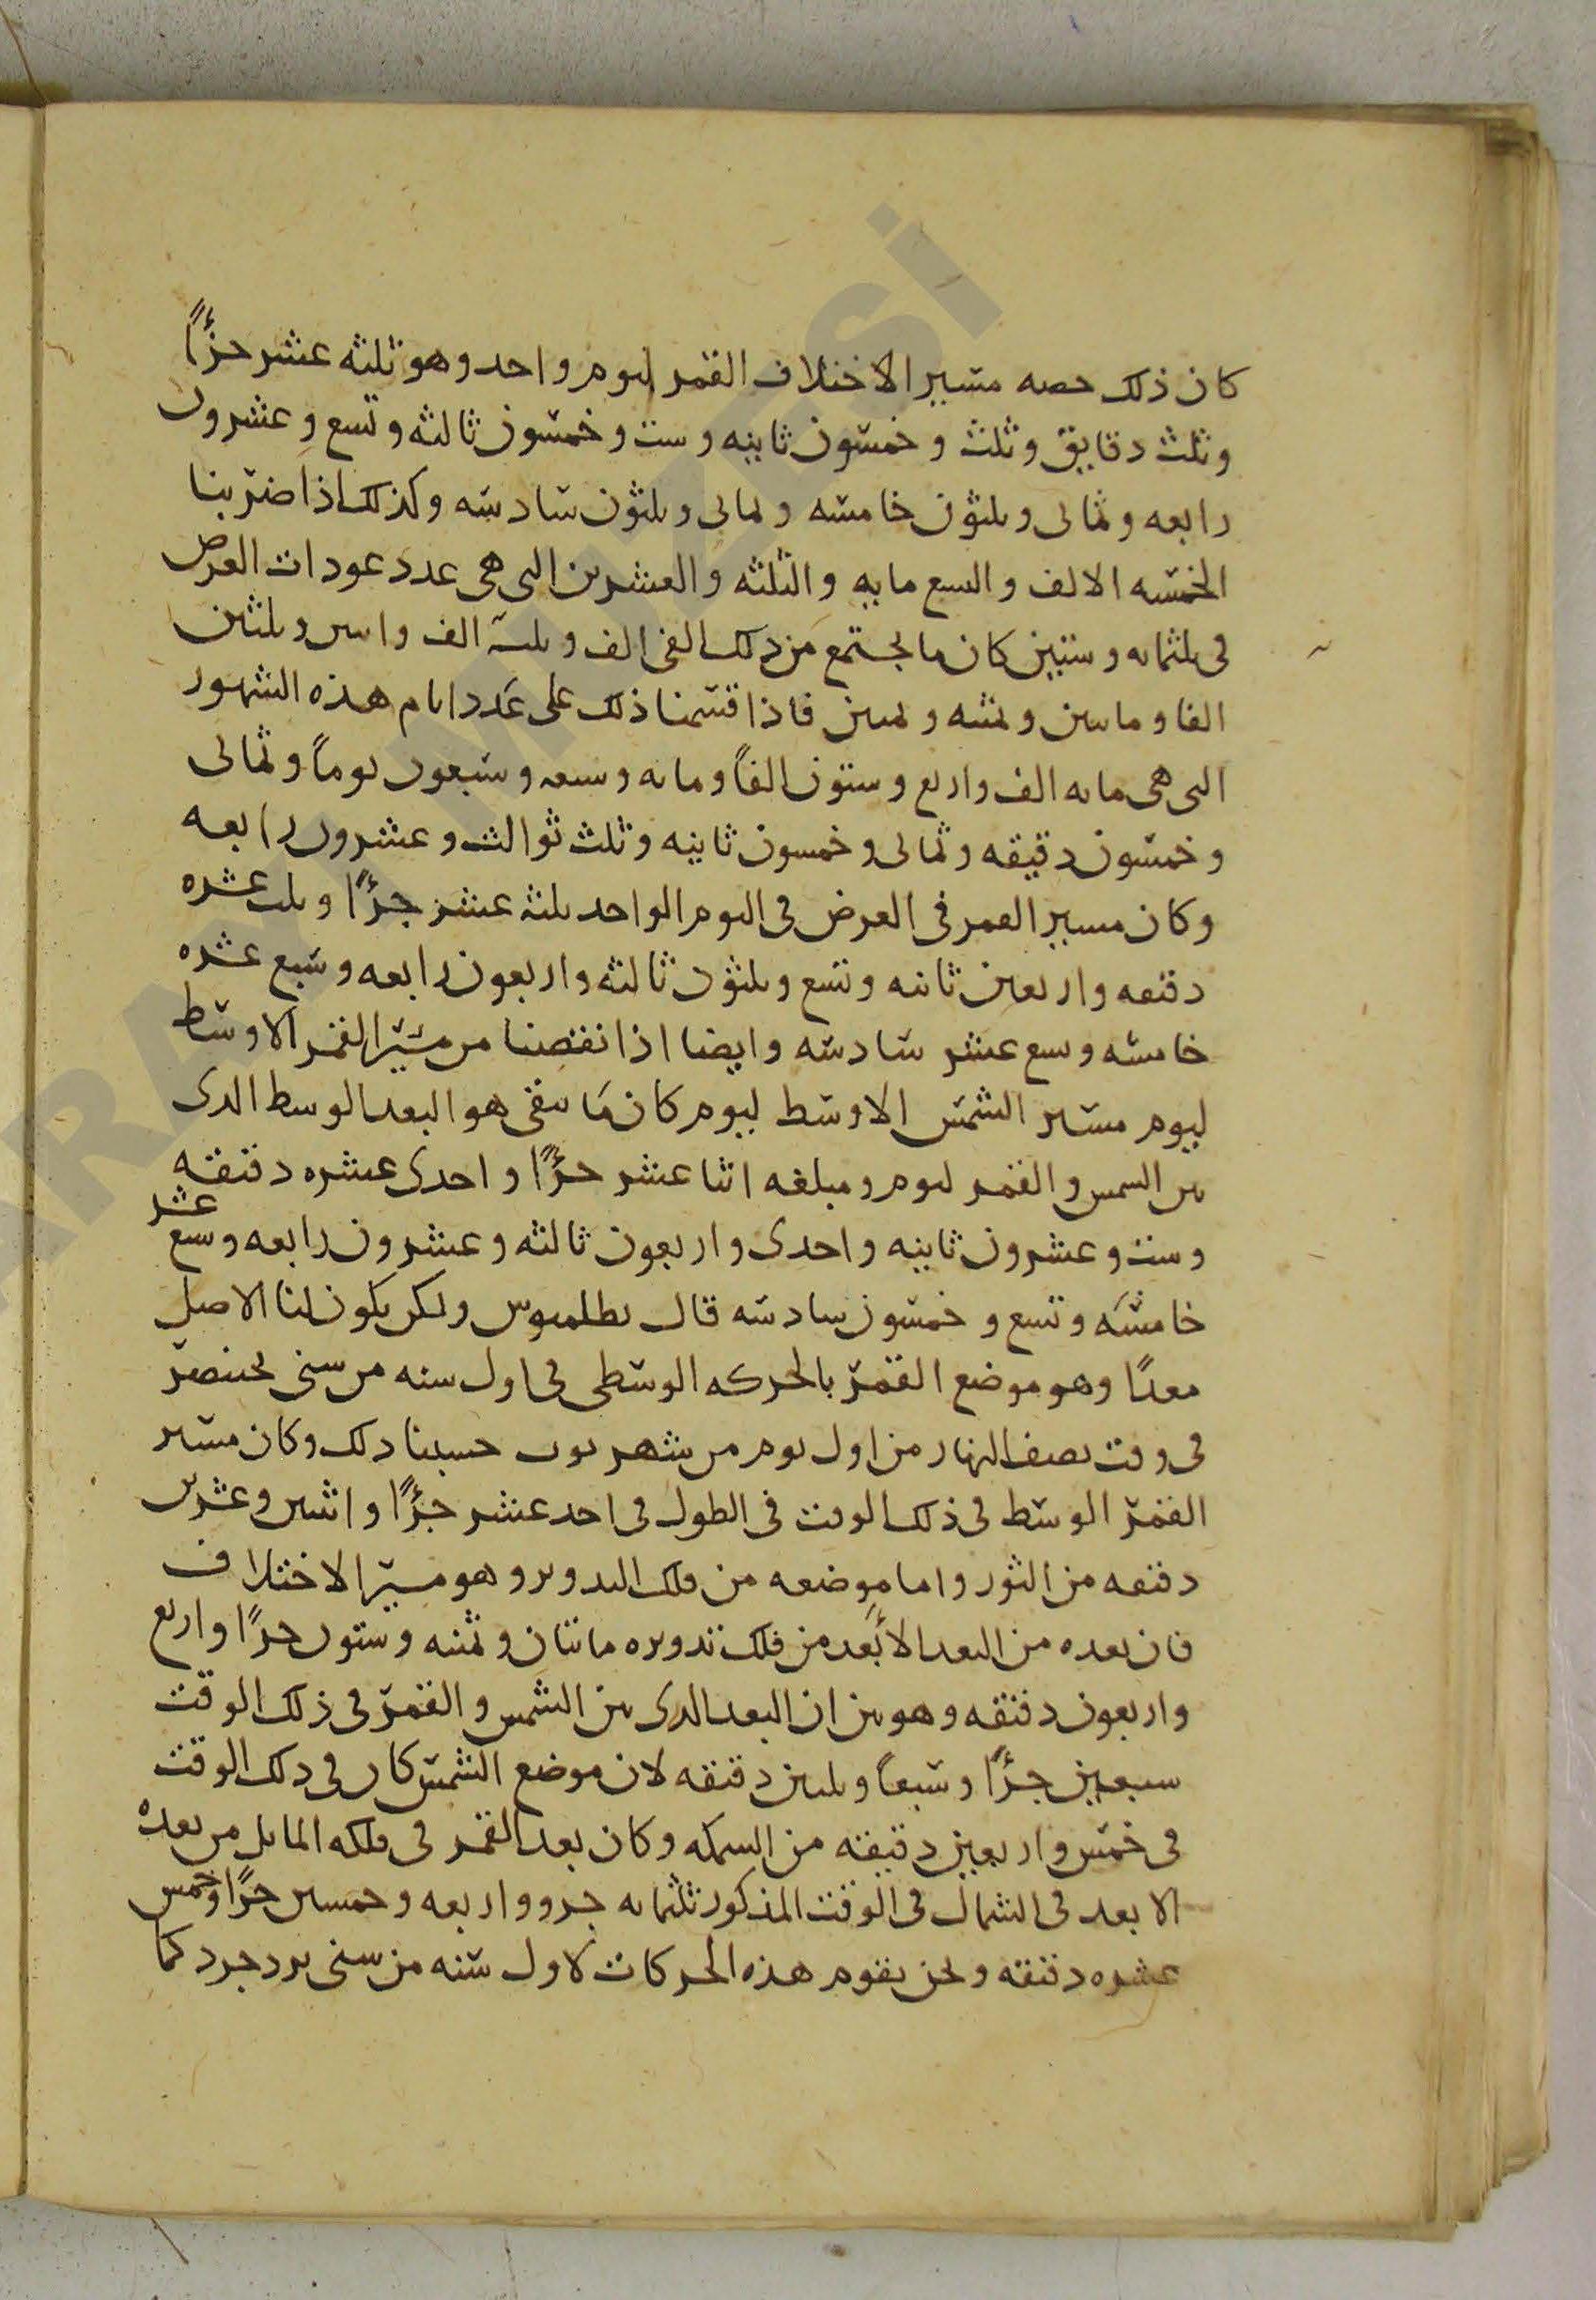 كان ذلك حصه مسير الاختلاف القمر ليوم واحد وهو ثلثه عشر جزءًا
وثلث دقايق وثلث وخمسون ثانيه وست وخمسون ثالثه وتسع وعشرون
رابعه وثمانى وثلثون خامسه وثمانى وثلثون سادسه وكذلك اذا ضربنا
الخمسه الالف والسبع مايه والثلثه والعشرين التى هى عدد عودات العرض
فى ثلثمايه وستين كان ما يجتمع من ذلك الفى الف وستين الف واثنين وثلثين
الفا ومايتين وثمنيه وثمنين فاذا قسمنا ذلك على عدد ايام هذه الشهور
التى هى مايه الف واربع وستون الفاً ومايه وسبعه وسبعون يوماً وثمانى
وخمسون دقيقه وثمانى وخمسون ثانيه وثلث ثوالث وعشرون رابعه
وكان مسير القمر فى العرض فى اليوم الواحد ثلثه عشر جزءًا وثلث عشره
دقيقه واربعين ثانيه وتسع وثلثون ثالثه واربعون رابعه وسبع عشره
خامسه وتسع عشر سادسه وايضا اذا نقصنا من مسير القمر الاوسط
ليوم مسير الشمس الاوسط ليوم كان ما يبقى هو البعد الوسط الذى
بين الشمس والقمر ليوم ومبلغه اثنا عشر جزءًا واحدى عشره دقيقه
وست وعشرون ثانيه واحدى واربعون ثالثه وعشرون رابعه وسبع عشر
خامسه وتسع وخمسون سادسه قال بطلميوس ولكن يكون لنا الاصل
معدًا وهو موضع القمر بالحركه الوسطى فى اول سنه من سنى بختنصر
فى وقت نصف النهار من اول يوم من شهر توت حسبنا ذلك وكان مسير
القمر الوسط فى ذلك الوقت فى الطول فى احد عشر جزءًا واثنين وعشرين
دقيقه من الثور واما موضعه من فلك التدوير وهو مسير الاختلاف
فان بعده من البعد الأبعد من فلك تدويره مائتان وثمنيه وستون جزءًا واربع
واربعون دقيقه وهو بين ان البعد الذى بين الشمس والقمر فى ذلك الوقت
سبعين جزءًا وسبعاً وثلثين دقيقه لان موضع الشمس كان فى ذلك الوقت
فى خمس واربعين دقيقه من السمكه وكان بعد القمر فى فلكه المايل من بعده
الابعد فى الشمال فى الوقت المذكور ثلثمايه جزو واربعه وخمسين جزءًا وخمس
عشره دقيقه ونحن نقوم هذه الحركات لاول سنه من سنى يزدجرد كما